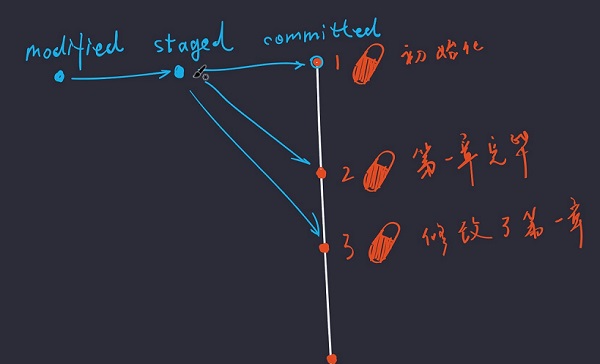 modified staged committed
1 初始化
2 第一章完毕
3 修改了第一章